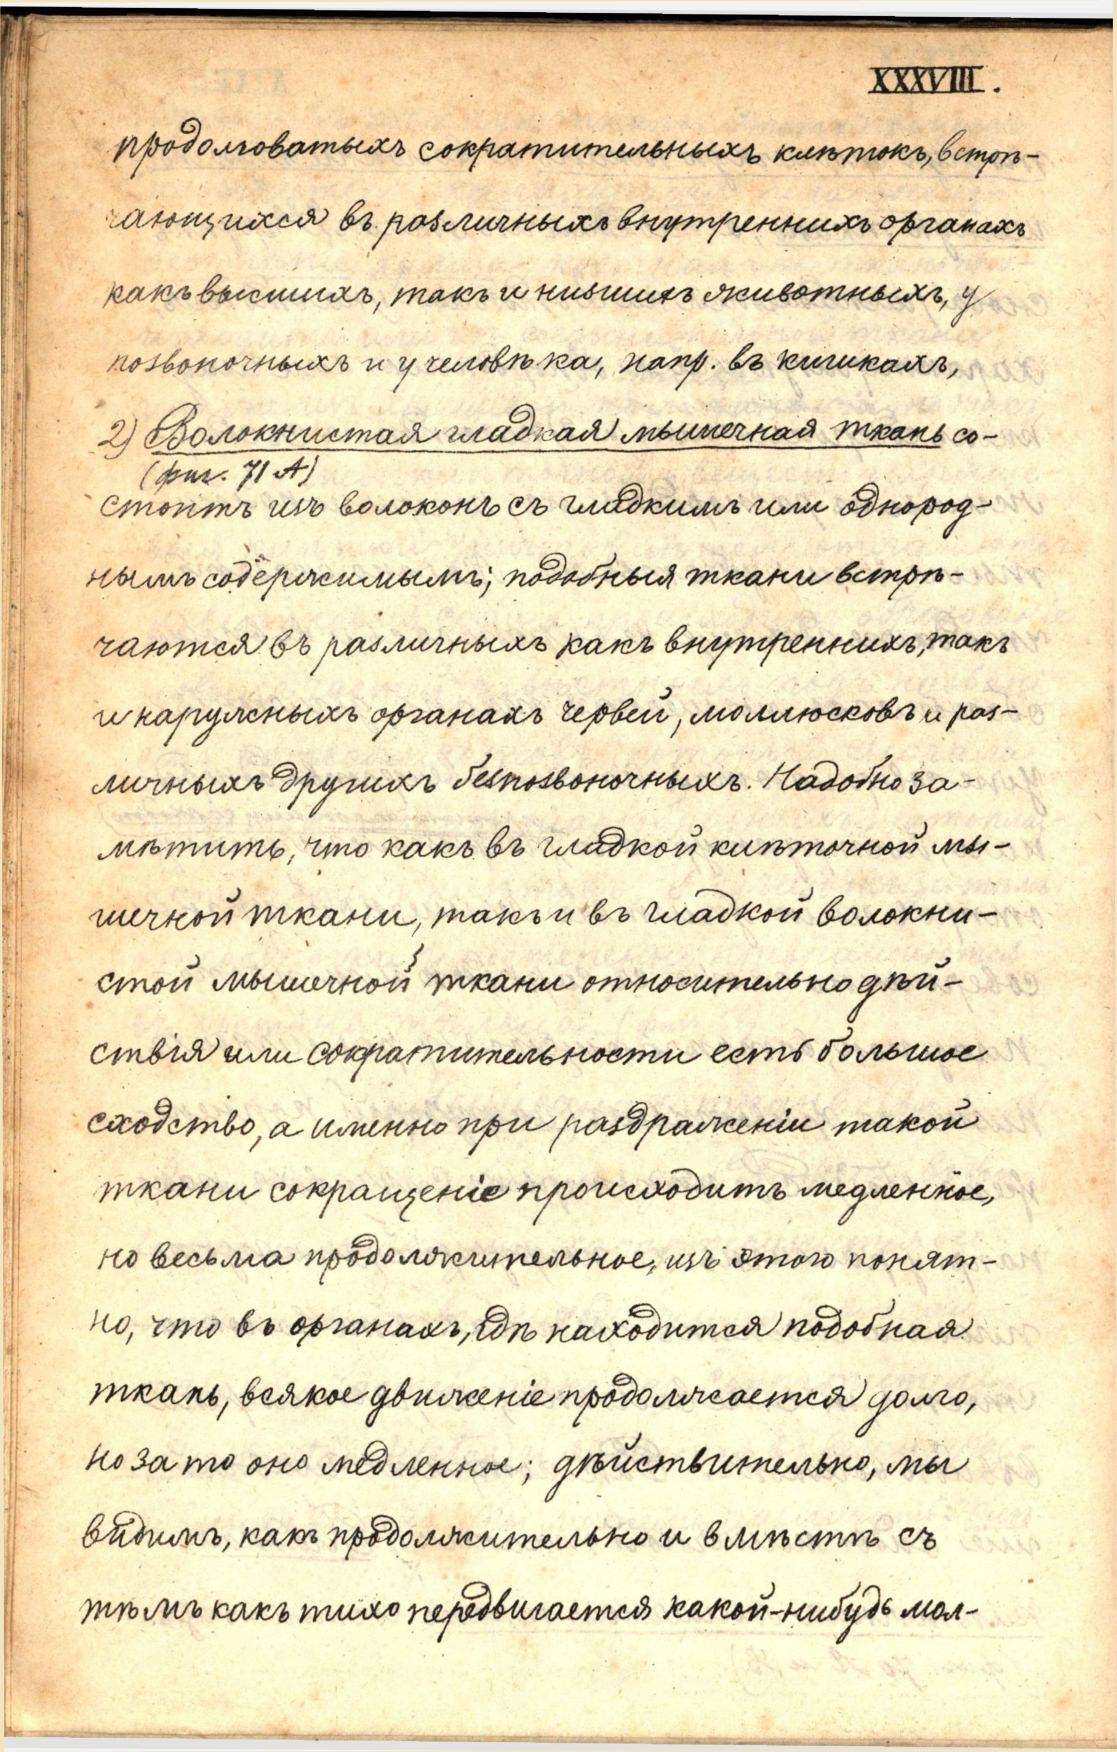 XXXVIII.
продолговатыхъ сократительныхъ клѣтокъ, встрѣ-
чающихся въ различныхъ внутреннихъ органахъ
какъ высшихъ, такъ и низшихъ животныхъ, у
позвоночныхъ и у человѣка, напр. въ кишкахъ,
2) Волокнистая гладкая мышечная ткань со-
(фиг. 71 А)
стоитъ изъ волоконъ съ гладкимъ или однород-
нымъ содержимымъ; подобныя ткани встрѣ-
чаются въ различныхъ какъ внутреннихъ, такъ
и наружныхъ органахъ червей, моллюсковъ и раз-
личныхъ другихъ безпозвоночныхъ. Надобно за-
мѣтить, что какъ въ гладкой клѣточной мы-
шечной ткани, такъ и въ гладкой волокни-
стой мышечной ткани относительно дѣй-
ствія или сократительности есть большое
сходство, а именно при раздраженіи такой
ткани сокращеніе происходитъ медленное,
но весьма продолжительное, изъ этого понят-
но, что въ органахъ, гдѣ находится подобная
ткань, всякое движеніе продолжается долго,
но за то оно медленное; дѣйствительно, мы
видимъ, какъ продолжительно и вмѣстѣ съ
тѣмъ какъ тихо передвигается какой-нибудь мол-